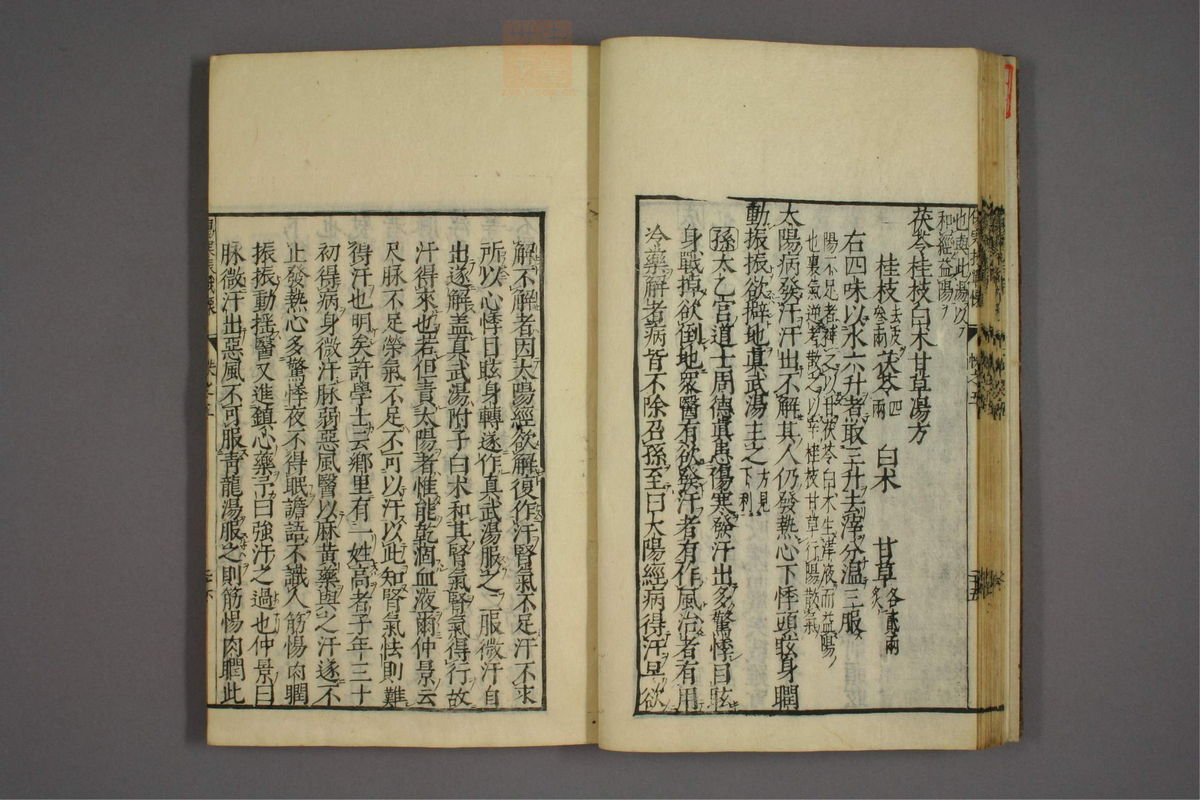 也與此湯以
和經益陽
茯苓桂枝白朮甘草湯方
桂枝去皮參兩 茯苓四兩 白朮 甘草各貳兩炙
右四味以水六升煮取三升去滓分溫三服
陽不足者補之以甘茯苓白朮生津液而益陽
也裏氣逆者散之以辛桂枝甘草行陽散氣
太陽病發汗汗出不解其人仍發熱心下悸頭眩身瞤
動振振欲擗地真武湯主之方見下利
孫太乙宮道士周德真患傷寒發汗出多驚悸目眩
身戰掉欲倒地衆醫有欲發汗者有作風治者有用
冷藥解者病皆不除召孫至曰太陽經病得汗早欲
解不解者因太陽經欲解復作汗腎氣不足汗不來
所以心悸目眩身轉遂作真武湯服之一服微汗自
出遂解蓋真武湯附子白朮和其腎氣腎氣得行故
汗得來也若但責太陽者惟能乾涸血液爾仲景云
尺脉不足榮氣不足不可以汗以此知腎氣怯則難
得汗也明矣許學士云鄉里有一姓高者子年三十
初得病身微汗脉弱惡風醫以麻黃藥與之汗遂不
止發熱心多驚悸夜不得眠譫語不識人筋惕肉瞤
振振動搖醫又進鎮心藥予曰強汗之過也仲景曰
脉微汗出惡風不可服青龍湯服之則筋惕肉瞤此